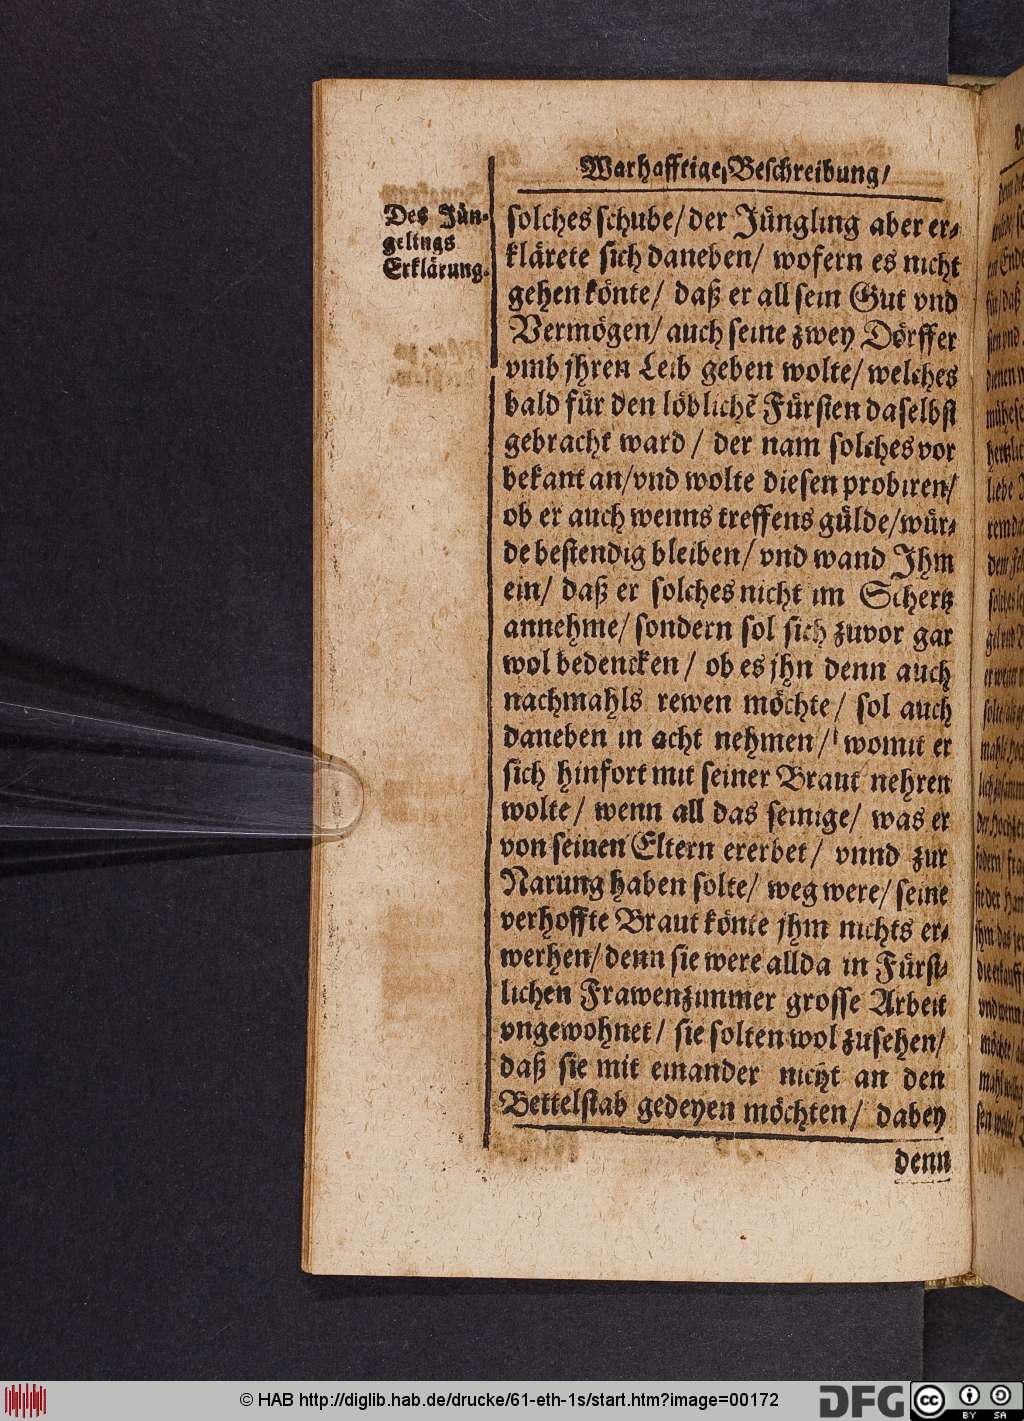 Warhafftige Beschreibung/
Des Jün-
gelings
Erklärung.
solches schube/ der Jüngling aber er-
klärete sich daneben/ wofern es nicht
gehen könte/ daß er all sein Gut vnd
Vermögen/ auch seine zwey Dörffer
vmb jhren Leib geben wolte/ welches
bald für den löblichẽ Fürsten daselbst
gebracht ward/ der nam solches vor
bekant an/ vnd wolte diesen probiren/
ob er auch wenns treffens gülde/ wür-
de bestendig bleiben/ vnd wand Ihm
ein/ daß er solches nicht im Schertz
annehme/ sondern sol sich zuvor gar
wol bedencken/ ob es jhn denn auch
nachmahls rewen möchte/ sol auch
daneben in acht nehmen/ womit er
sich hinfort mit seiner Braut nehren
wolte/ wenn all das seinige/ was er
von seinen Eltern ererbet/ vnnd zur
Narung haben solte/ weg were/ seine
verhoffte Braut könte jhm nichts er-
werhen/ denn sie were allda in Fürst-
lichen Frawenzimmer grosse Arbeit
vngewohnet/ sie solten wol zusehen/
daß sie mit einander nicht an den
Bettelstab gedeyen möchten/ dabey
denn
© HAB http://diglib.hab.de/drucke/61-eth-1s/start.htm?image=00172
DFG
cc
BY SA